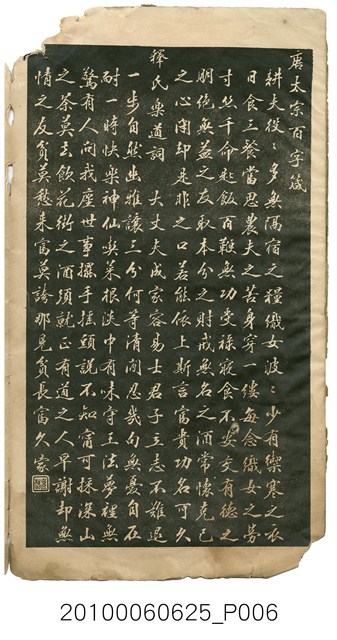 唐太宗百字箴
耕夫役〻多無隔宿之糧織女波〻少有禦寒之衣
日食三餐當思農夫之苦身穿一縷每念織女之勞
寸絲千命匙飯百鞭無功受祿寢食不安交有德之
朋絕無益之友取本分之財戒無名之酒常懷克己
之心閉却是非之口若能依上斯言富貴功名可久
釋氏樂道詞　大丈夫成家容易士君子立志不難退
一步自然幽雅讓三分何等清閒忍幾句無憂自在
耐一時快樂神仙喫菜根淡中有味守王法夢裡無
驚有人問我塵世事擺手搖頭說不知甯可採深山
之茶莫去飲花街之酒須就正有道之人早謝却無
情之友貧莫愁來富莫誇那見貧長富久家
20100060625_P006